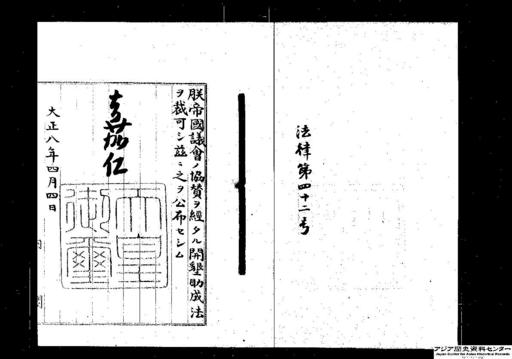 法律第四十二号
朕帝國議會ノ協賛ヲ經タル開墾助成法
ヲ裁可シ茲ニ之ヲ公布セシム
嘉仁
天皇
御璽
大正八年四月四日
内閣
アジア歴史資料センター
Japan Center for Asian Historical Records